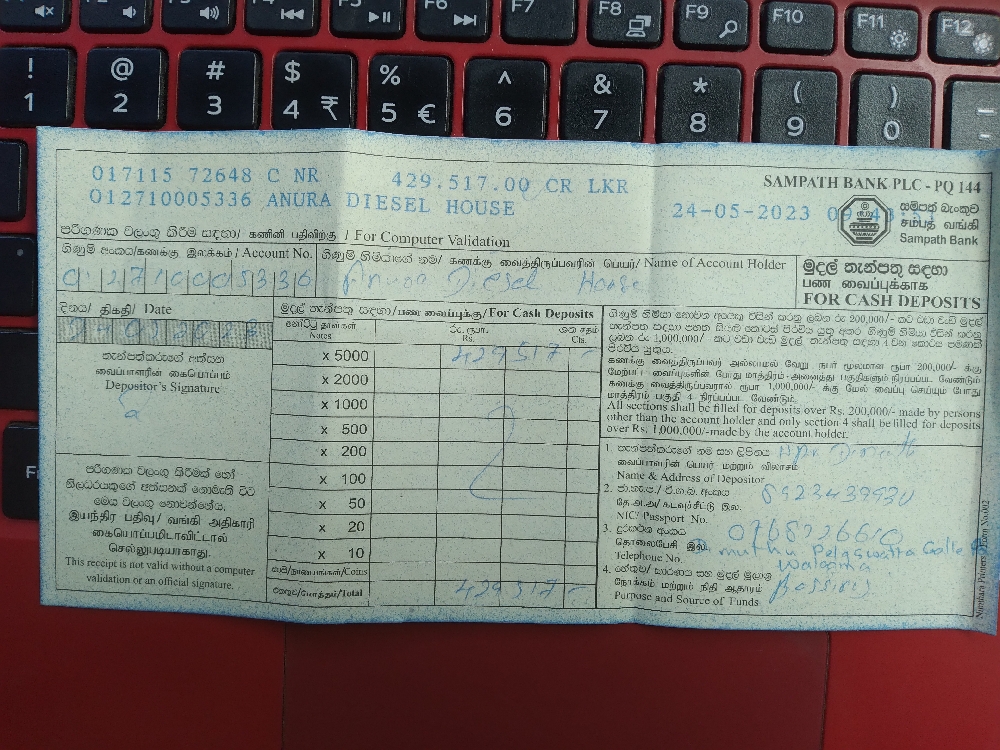 F7
F8
F9
F10
F11
F12
! 1
@ 2
# 3
$ 4 ₹
% 5 €
^ 6
& 7
* 8
( 9
) 0
017115 72648 C NR 429.517.00 CR LKR
012710005336 ANURA DIESEL HOUSE
SAMPATH BANK PLC - PQ 144
24-05-2023
සම්පත් බැංකුව
சம்பத் வங்கி
Sampath Bank
පරිගණක වලංගු කිරීම සඳහා/ கணினி பதிவிற்கு / For Computer Validation
ගිණුම් අංකය/கணக்கு இலக்கம் / Account No.
012710005336
ගිණුම් හිමියාගේ නම/ கணக்கு வைத்திருப்பவரின் பெயர்/ Name of Account Holder
Anura Diesel House
මුදල් තැන්පතු සඳහා
பண வைப்புக்காக
FOR CASH DEPOSITS
දිනය/ திகதி/ Date
තැන්පත්කරුගේ අත්සන
வைப்பாளரின் கையொப்பம்
Depositor's Signature
පරිගණක වලංගු කිරීමක් හෝ
නිලධරයකුගේ අත්සනක් නොමැති විට
මෙය වලංගු නොවන්නේය.
இயந்திர பதிவு/ வங்கி அதிகாரி
கையொப்பமிடாவிட்டால்
செல்லுபடியாகாது.
This receipt is not valid without a computer
validation or an official signature.
මුදල් තැන්පතු සඳහා/பண வைப்புக்கு/For Cash Deposits
නෝට්ටු/தாள்கள்
Notes
රු. ரூபா.
Rs.
ශත சதம்
Cts.
x 5000 429517 -
x 2000
x 1000
x 500
x 200
x 100
x 50
x 20
x 10
කාසි/நாணயங்கள்/Coins
එකතුව/மொத்தம்/Total 429517 -
கணக்கு வைத்திருப்பவர் அல்லாமல் வேறு நபர் மூலமான ரூபா 200,000/- க்கு
மேற்பட்ட வைப்புகளின் போது மாத்திரம் அனைத்து பகுதிகளும் நிரப்பப்பட வேண்டும்
கணக்கு வைத்திருப்பவரால் ரூபா 1,000,000/- க்கு மேல் வைப்பு செய்யும் போது
மாத்திரம் பகுதி 4 நிரப்பப்பட வேண்டும்.
All sections shall be filled for deposits over Rs. 200,000/- made by persons
other than the account holder and only section 4 shall be filled for deposits
over Rs. 1,000,000/-made by the account holder.
1. තැන්පත්කරුගේ නම සහ ලිපිනය
வைப்பாளரின் பெயர் மற்றும் விலாசம்
Name & Address of Depositor
2.
தே.அ.அ/ கடவுச்சீட்டு இல.
NIC/ Passport No.
3. දුරකථන අංකය
தொலைபேசி இல.
Telephone No.
muthu Pelaswatta Galle Rd
Walgama
4. හේතුව/ කාරණය සහ මුදල් මූලාශ්‍ර
நோக்கம் மற்றும் நிதி ஆதாரம்
Purpose and Source of Funds